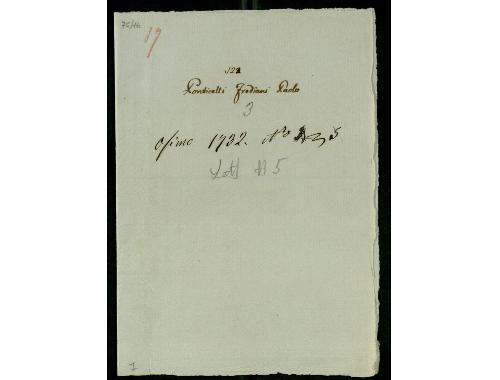 75/16
17
122
Ponticelli Frediani Paolo
3
Osimo 1732. No 5
Lett N 5
1